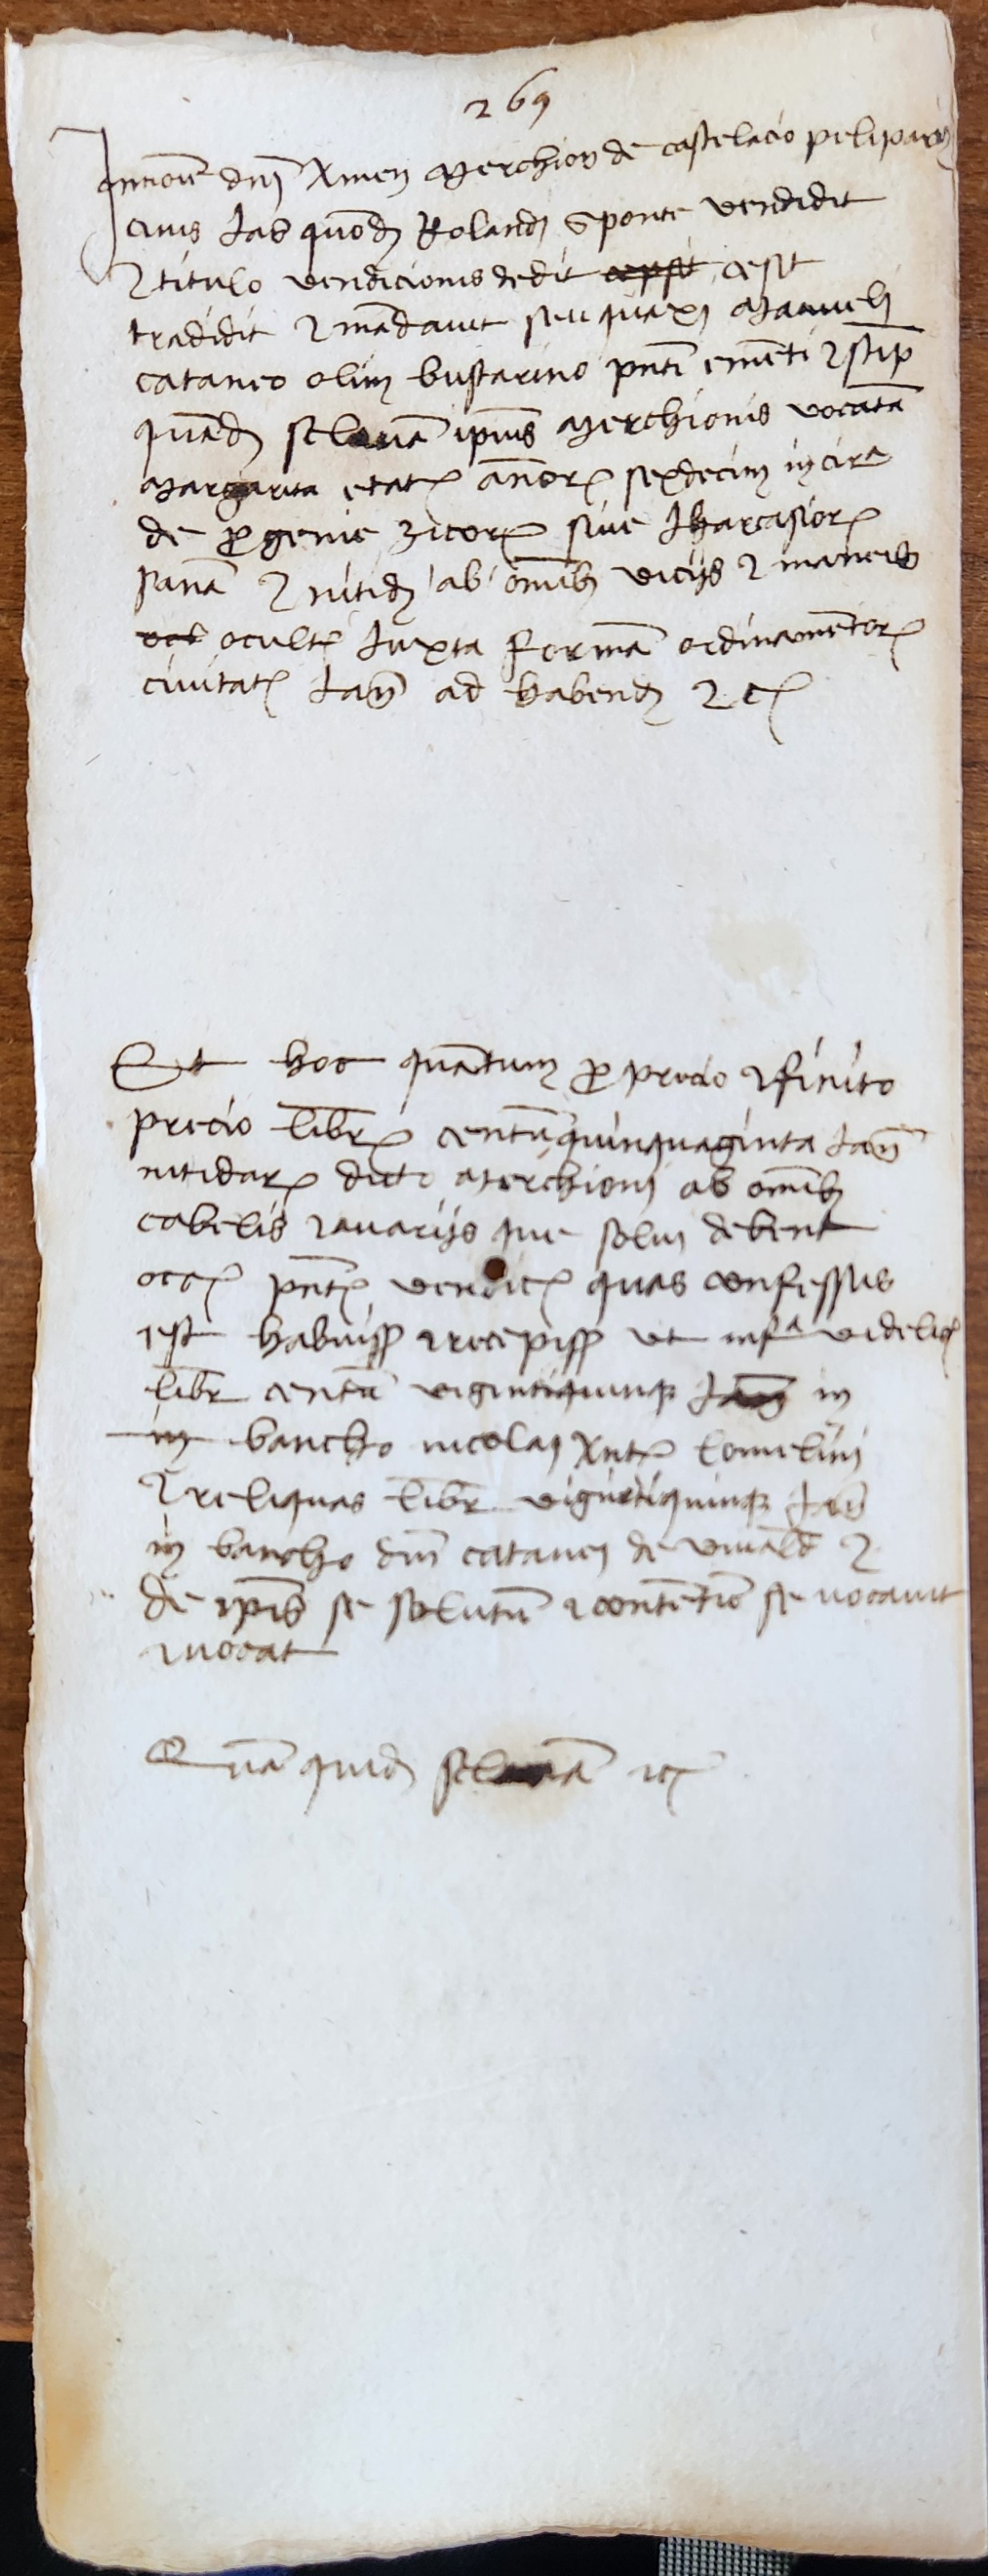 269
In nomine dni Xmen Merchion de castelacio peliparius
civis Jan quond Rolandi sponte vendidit
et titulo vendicionis dedit cepsit cesit
tradidit et mandavit seu quaxi Manueli
cataneo olim bustarino pnti ementi et stip
quand sclavam ipius Merchionis vocatam
Margarita etatis annorum sexdecim in cira
de progenie zicorum sive Jharcasiorum
sanam et nitid ab omibus viciis et maneis
ocl ocultis Juxta formam ordinamentorum
civitatis Jan ad habend et c
Et hoc quantum pro precio et finito
precio librarum centumquinquaginta Jan
nitidarum dicto Merchioni ab omibus
cabelis et avariis que solvi debent
ocaxe pntis vendicis quas confessus
est habuisse et recepisse ut infra videlicet
libr centum vigintiquinque Jan in
in bancho nicolai Xnte lomelini
et reliquas libr vigintiquinque Jan
in bancho dni catanei de vivald et
de ipis se solutum et contentum se vocavit
et vocat
Quam quid sclavam etc